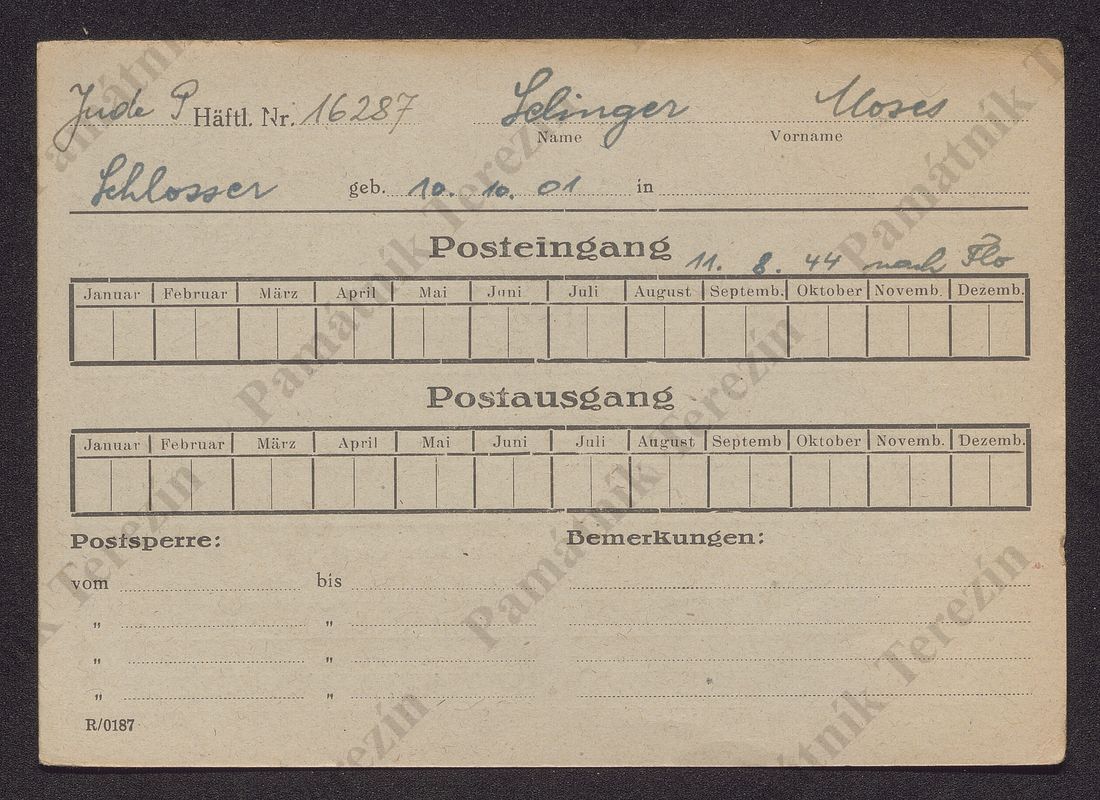 Jude P Häftl. Nr. 16287 Selinger Moses
Name Vorname
Schlosser geb. 10. 10. 01 in
Posteingang 11. 8. 44 nach Flo
Januar Februar März April Mai Juni Juli August Septemb. Oktober Novemb. Dezemb.
Postausgang
Januar Februar März April Mai Juni Juli August Septemb Oktober Novemb. Dezemb.
Postsperre: Bemerkungen:
vom bis
" "
" "
" "
R/0187
Památník Terezín